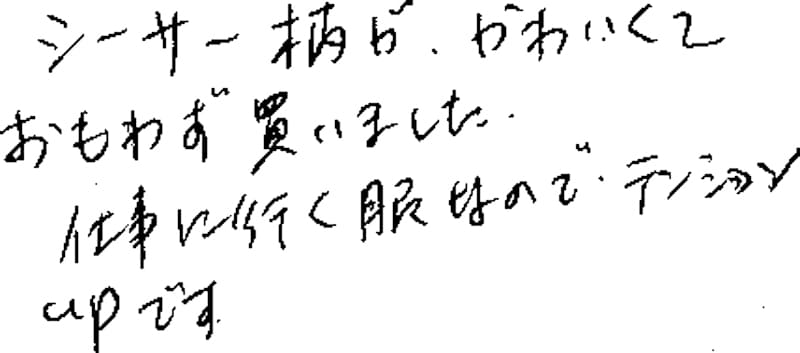 シーサー柄が、かわいくて
おもわず買いました.
仕事に行く服なので、テンション
upです